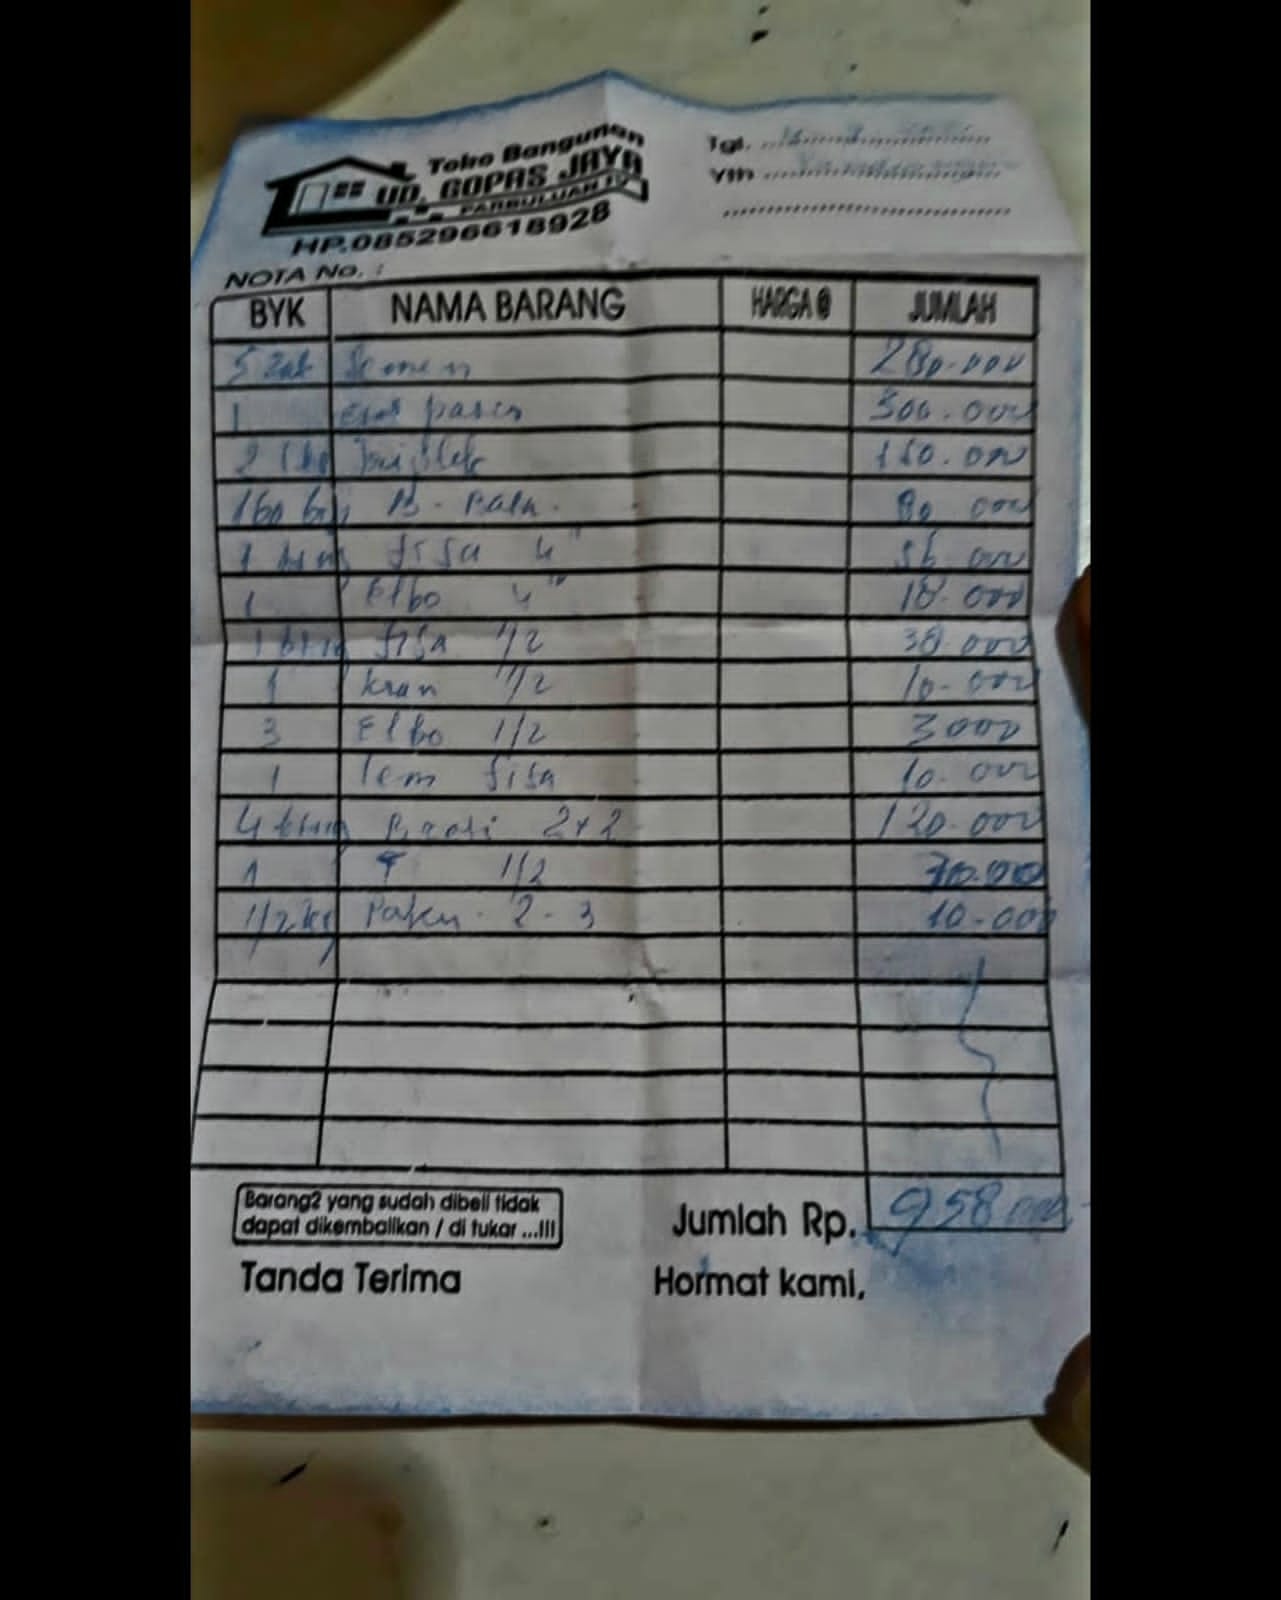 Toko Bangunan
UD. GOPAS JAYA
PARBULUAN IV
HP.085296618928
Tgl.
Yth
NOTA No. :
BYK NAMA BARANG HARGA @ JUMLAH
5 Zak Semen 280.000
1 pasir 300.000
2
160 biji B. Bata. 80 000
1 btng fifa 4" 56.000
1 Elbo 4" 18.000
1 btng fifa 1/2 38.000
1 kran 1/2 10.000
3 Elbo 1/2 3000
1 lem fifa 10.000
4 btng 2x2 120.000
1 T 1/2
1/2 kg Paku. 2-3 10.000
Barang2 yang sudah dibeli tidak
dapat dikembalikan / di tukar ...!!!
Jumlah Rp. 958.000
Tanda Terima Hormat kami,